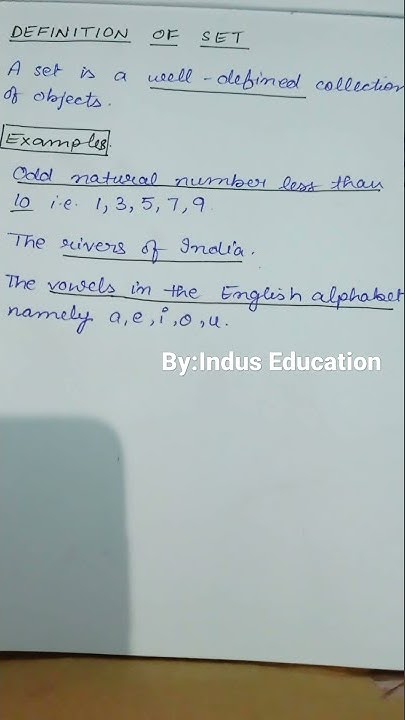 DEFINITION OF SET
A set is a well-defined collection
of objects.
Examples.
Odd natural number less than
10 i.e. 1, 3, 5, 7, 9
The rivers of India.
The vowels in the English alphabet
namely a, e, i, o, u.
By:Indus Education